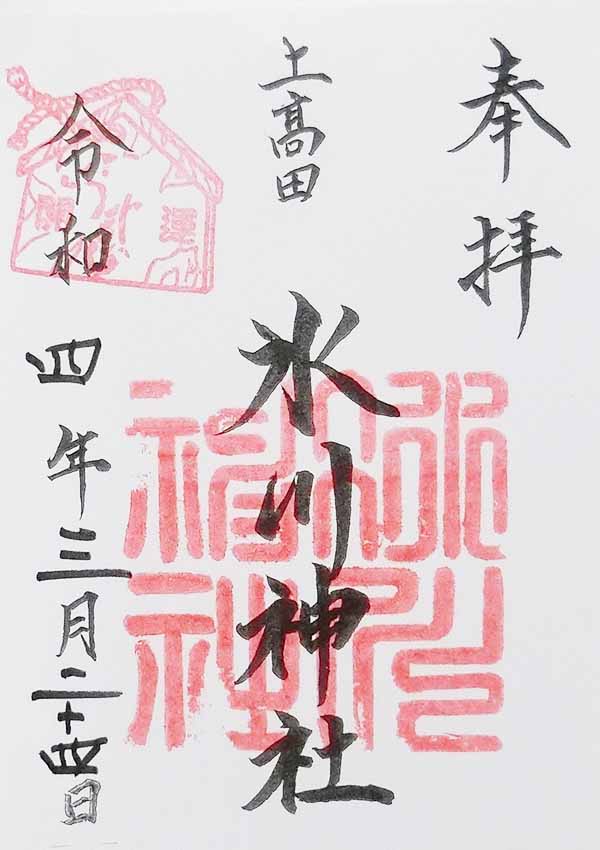 奉拝
上高田
氷川神社
令和四年三月二十四日